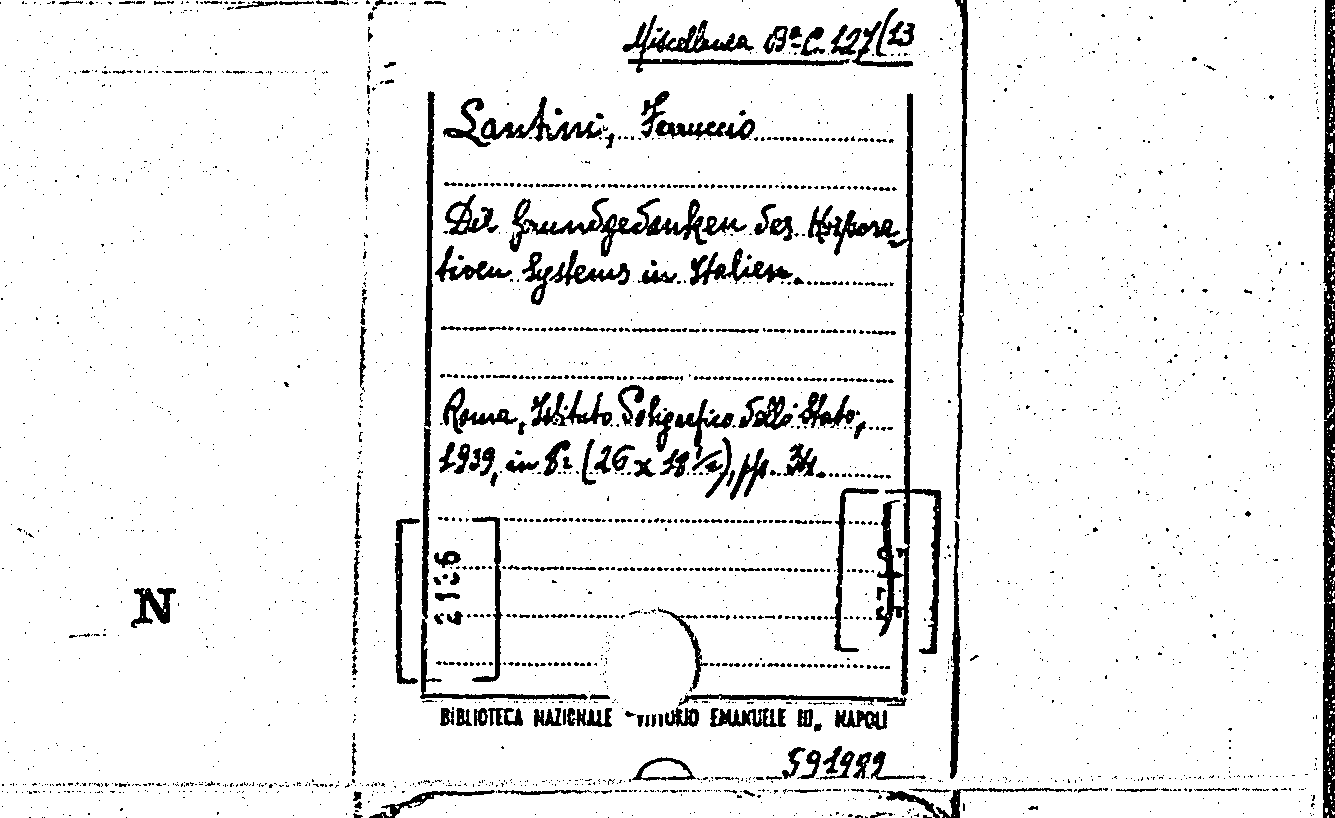 Miscellanea Bª C. 127/13
Santini, Ferruccio
Die Grundgedanken des Korpora-
tiven Systems in Italien.
Roma, Istituto Poligrafico dello Stato,
1939, in 8º (26 x 18½), pp. 34.
2136
N
BIBLIOTECA NAZIONALE VITTORIO EMANUELE III. NAPOLI
591989